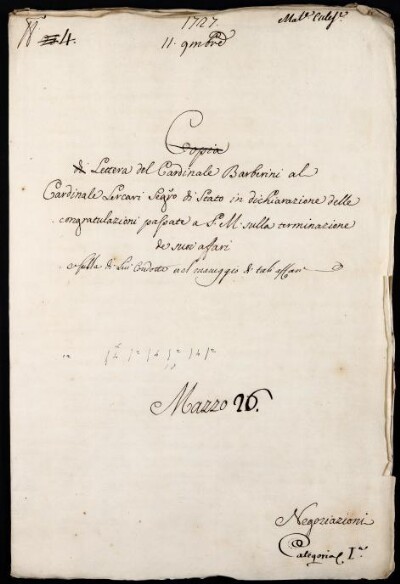 1727
11. 9mbre
4.
Copia
di Lettera del Cardinale Barberini al
Cardinale Lercari Segro di Stato in dichiarazione delle
congratulazioni passate a S. M. sulla terminazione
de suoi affari
e sulla di Lui Condotta nel maneggio di tali affari
Mazzo 26.
Negoziazioni
Categoria I.a